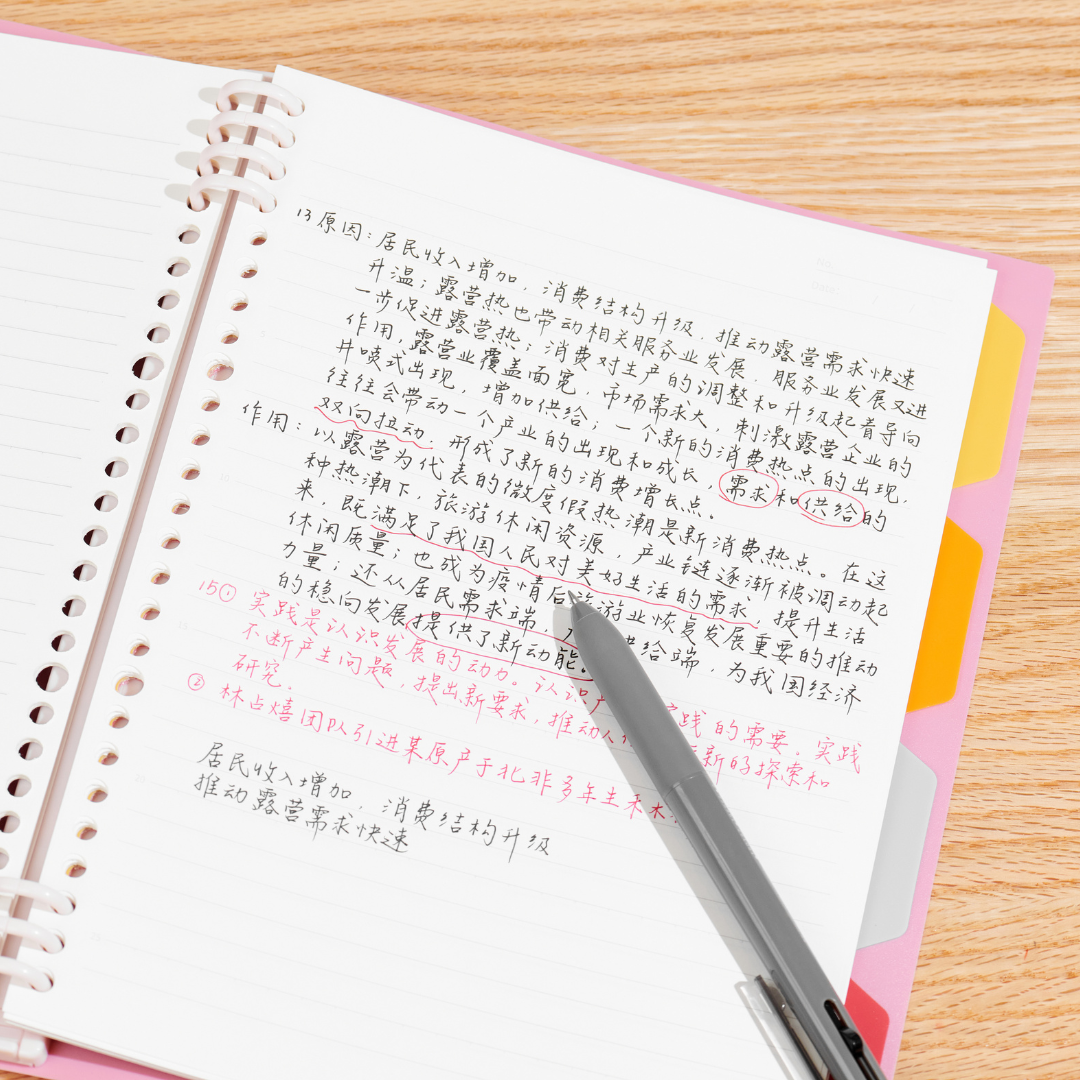 13原因：居民收入增加，消费结构升级，推动露营需求快速
升温；露营热也带动相关服务业发展，服务业发展又进
一步促进露营热；消费对生产的调整和升级起着导向
作用，露营业覆盖面宽，市场需求大，刺激露营企业的
井喷式出现，增加供给；一个新的消费热点的出现，
往往会带动一个产业的出现和成长，需求和供给的
双向拉动，形成了新的消费增长点。
作用：以露营为代表的微度假热潮是新消费热点。在这
种热潮下，旅游休闲资源，产业链逐渐被调动起
来，既满足了我国人民对美好生活的需求，提升生活
休闲质量；也成为疫情后旅游业恢复发展重要的推动
力量；还从居民需求端，供给端，为我国经济
的稳向发展提供了新动能。
15① 实践是认识发展的动力。认识 实践的需要。实践
不断产生问题，提出新要求，推动人 新的探索和
研究。
② 林占熺团队引进某原产于北非多年生禾本
居民收入增加，消费结构升级
推动露营需求快速